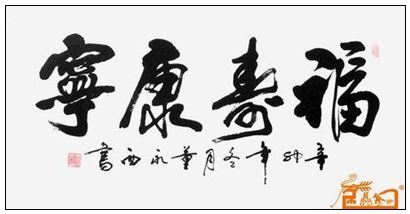 福寿康寧
辛卯年冬月董永西書